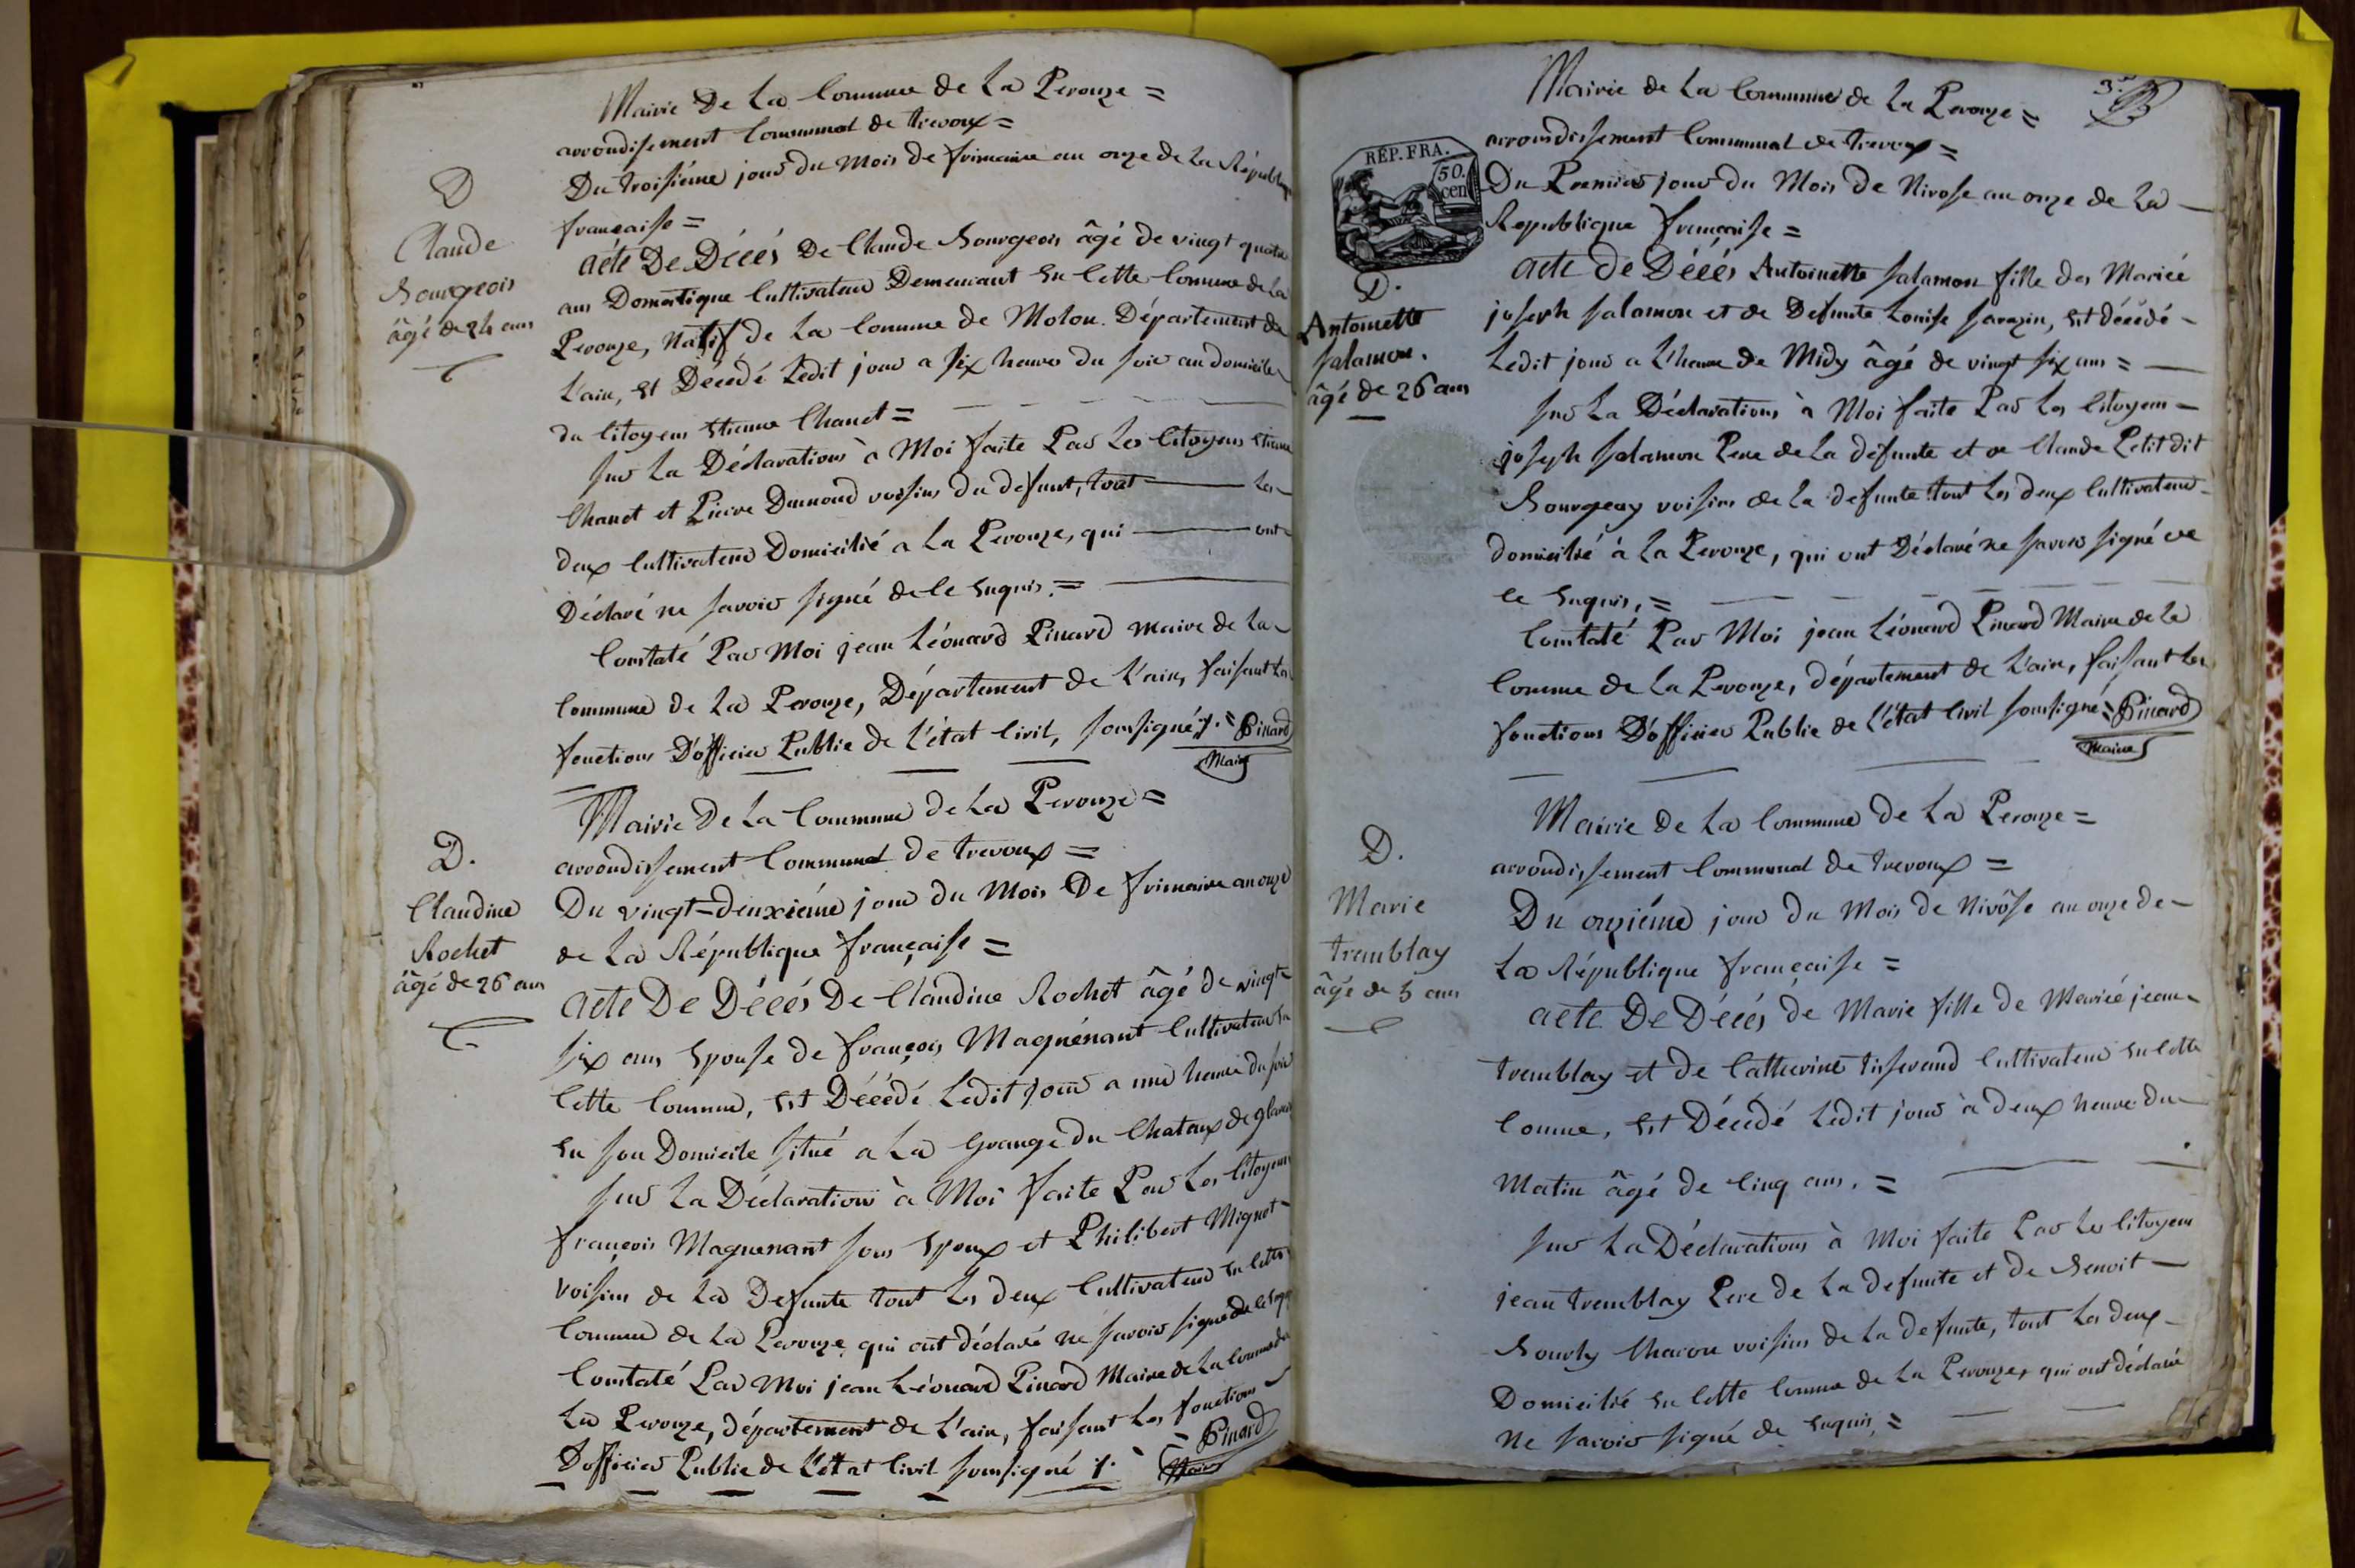 Mairie De La Commune de La Perouze =
arrondissement Communal de trevoux =
Du troisiéme jour du Mois de frimaire an onze de La Républiq
francaise =
D
Claude
Bourgeois
âgé de 24 ans
acte De Décés De Claude Bourgeois âgé de vingt quatre
ans Domestique Cultivateur Demeurant En Cette Commune de La
Perouze, Natif de La Comune de Molon. Département de
L'ain, Est Décedé Ledit jour a six heures du soir au domicile
du Citoyens Etienne Chanet =
Sur La Déclarations à Moi faite Par Les Citoyens Etienne
Chanet et Pierre Dumond voisins du defunt, tout Les
deux Cultivateurs Domicilié a La Perouze, qui ont
Déclaré ne savoir signé de le Enquis. =
Constaté Par Moi jean Léonard Pinard Maire de La
Commune de La Perouze, Département de L'ain, faisant Les
fonctions D'officier Public de L'état Civil, soussigné ./. = Pinard
Maire
Mairie De La Commune de La Perouze =
arrondissement Communal de trevoux =
Du vingt-deuxiéme jour du Mois De frimaire an onze
de La République française =
D.
Claudine
Rochet
âgé de 26 ans
acte De Décés De Claudine Rochet âgé de vingt
six ans Epouse de françois Magnénant Cultivateur En
Cette Commune, Est Décédé Ledit jour a une heure du soir
En son Domicile situé a La Grange du Chataux de
Sur La Déclarations à Moi faite Par Les Citoyens
françois Magnenant sons Epoux et Philibert Mignot
voisins de La Defunte tout Les deux Cultivateurs En Cette
Commune de La Perouze qui ont déclaré ne savoir signé de le
Constaté Par Moi jean Léonard Pinard Maire de La Comune de
La Perouze, département de L'ain, faisant Les fonctions
D'officier Public de L'état Civil soussigné ./. = Pinard
Maire
Mairie de La Commune de La Perouze =
3.e
arrondissement Communal de trevoux =
REP. FRA.
50.
cen
Du Premier jour du Mois De Nivose an onze de La
Republique française =
D.
Antoinette
Salamon.
âgé de 26 ans
acte de Décés Antoinette Salamon fille des Mariée
joseph Salamon et de Defunte Louise Sarazin, Est décédé
Ledit jour a L'heure de Midy âgé de vingt six ans =
Sur La Déclarations à Moi faite Par Les Citoyens
joseph Salamon Pere de La défunte et de Claude Petit dit
Bourgeay voisins de La defunte tout Les deux Cultivateurs
domicilié à La Perouze, qui ont Déclaré ne savoir signé de
le Enquis, =
Constaté Par Moi jean Léonard Pinard Maire de La
Comune de La Perouze, département de L'ain, faisant Les
fonctions D'officier Public de L'état Civil soussigné = Pinard
Maire
Mairie de La Commune de La Perouze =
arrondissement Communal de trevoux =
Du onziéme jour du Mois de Nivôse an onze de
La République française =
D.
Marie
tremblay
âgé de 5 ans
acte De Décés de Marie fille de Mariée jean
tremblay et de Catherine tisserand Cultivateur En Cette
Comune, Est Décédé Ledit jour à deux heure du
Matin âgé de Cinq ans. =
Sur La Déclarations à Moi faite Par Les Citoyens
jean tremblay Pere de La defunte et de Benoit
Bourly Charon voisins de La defunte, tout Les deux
Domicilié En Cette Comune de La Perouze, qui ont déclaré
Ne savoir signé de Enquis, =